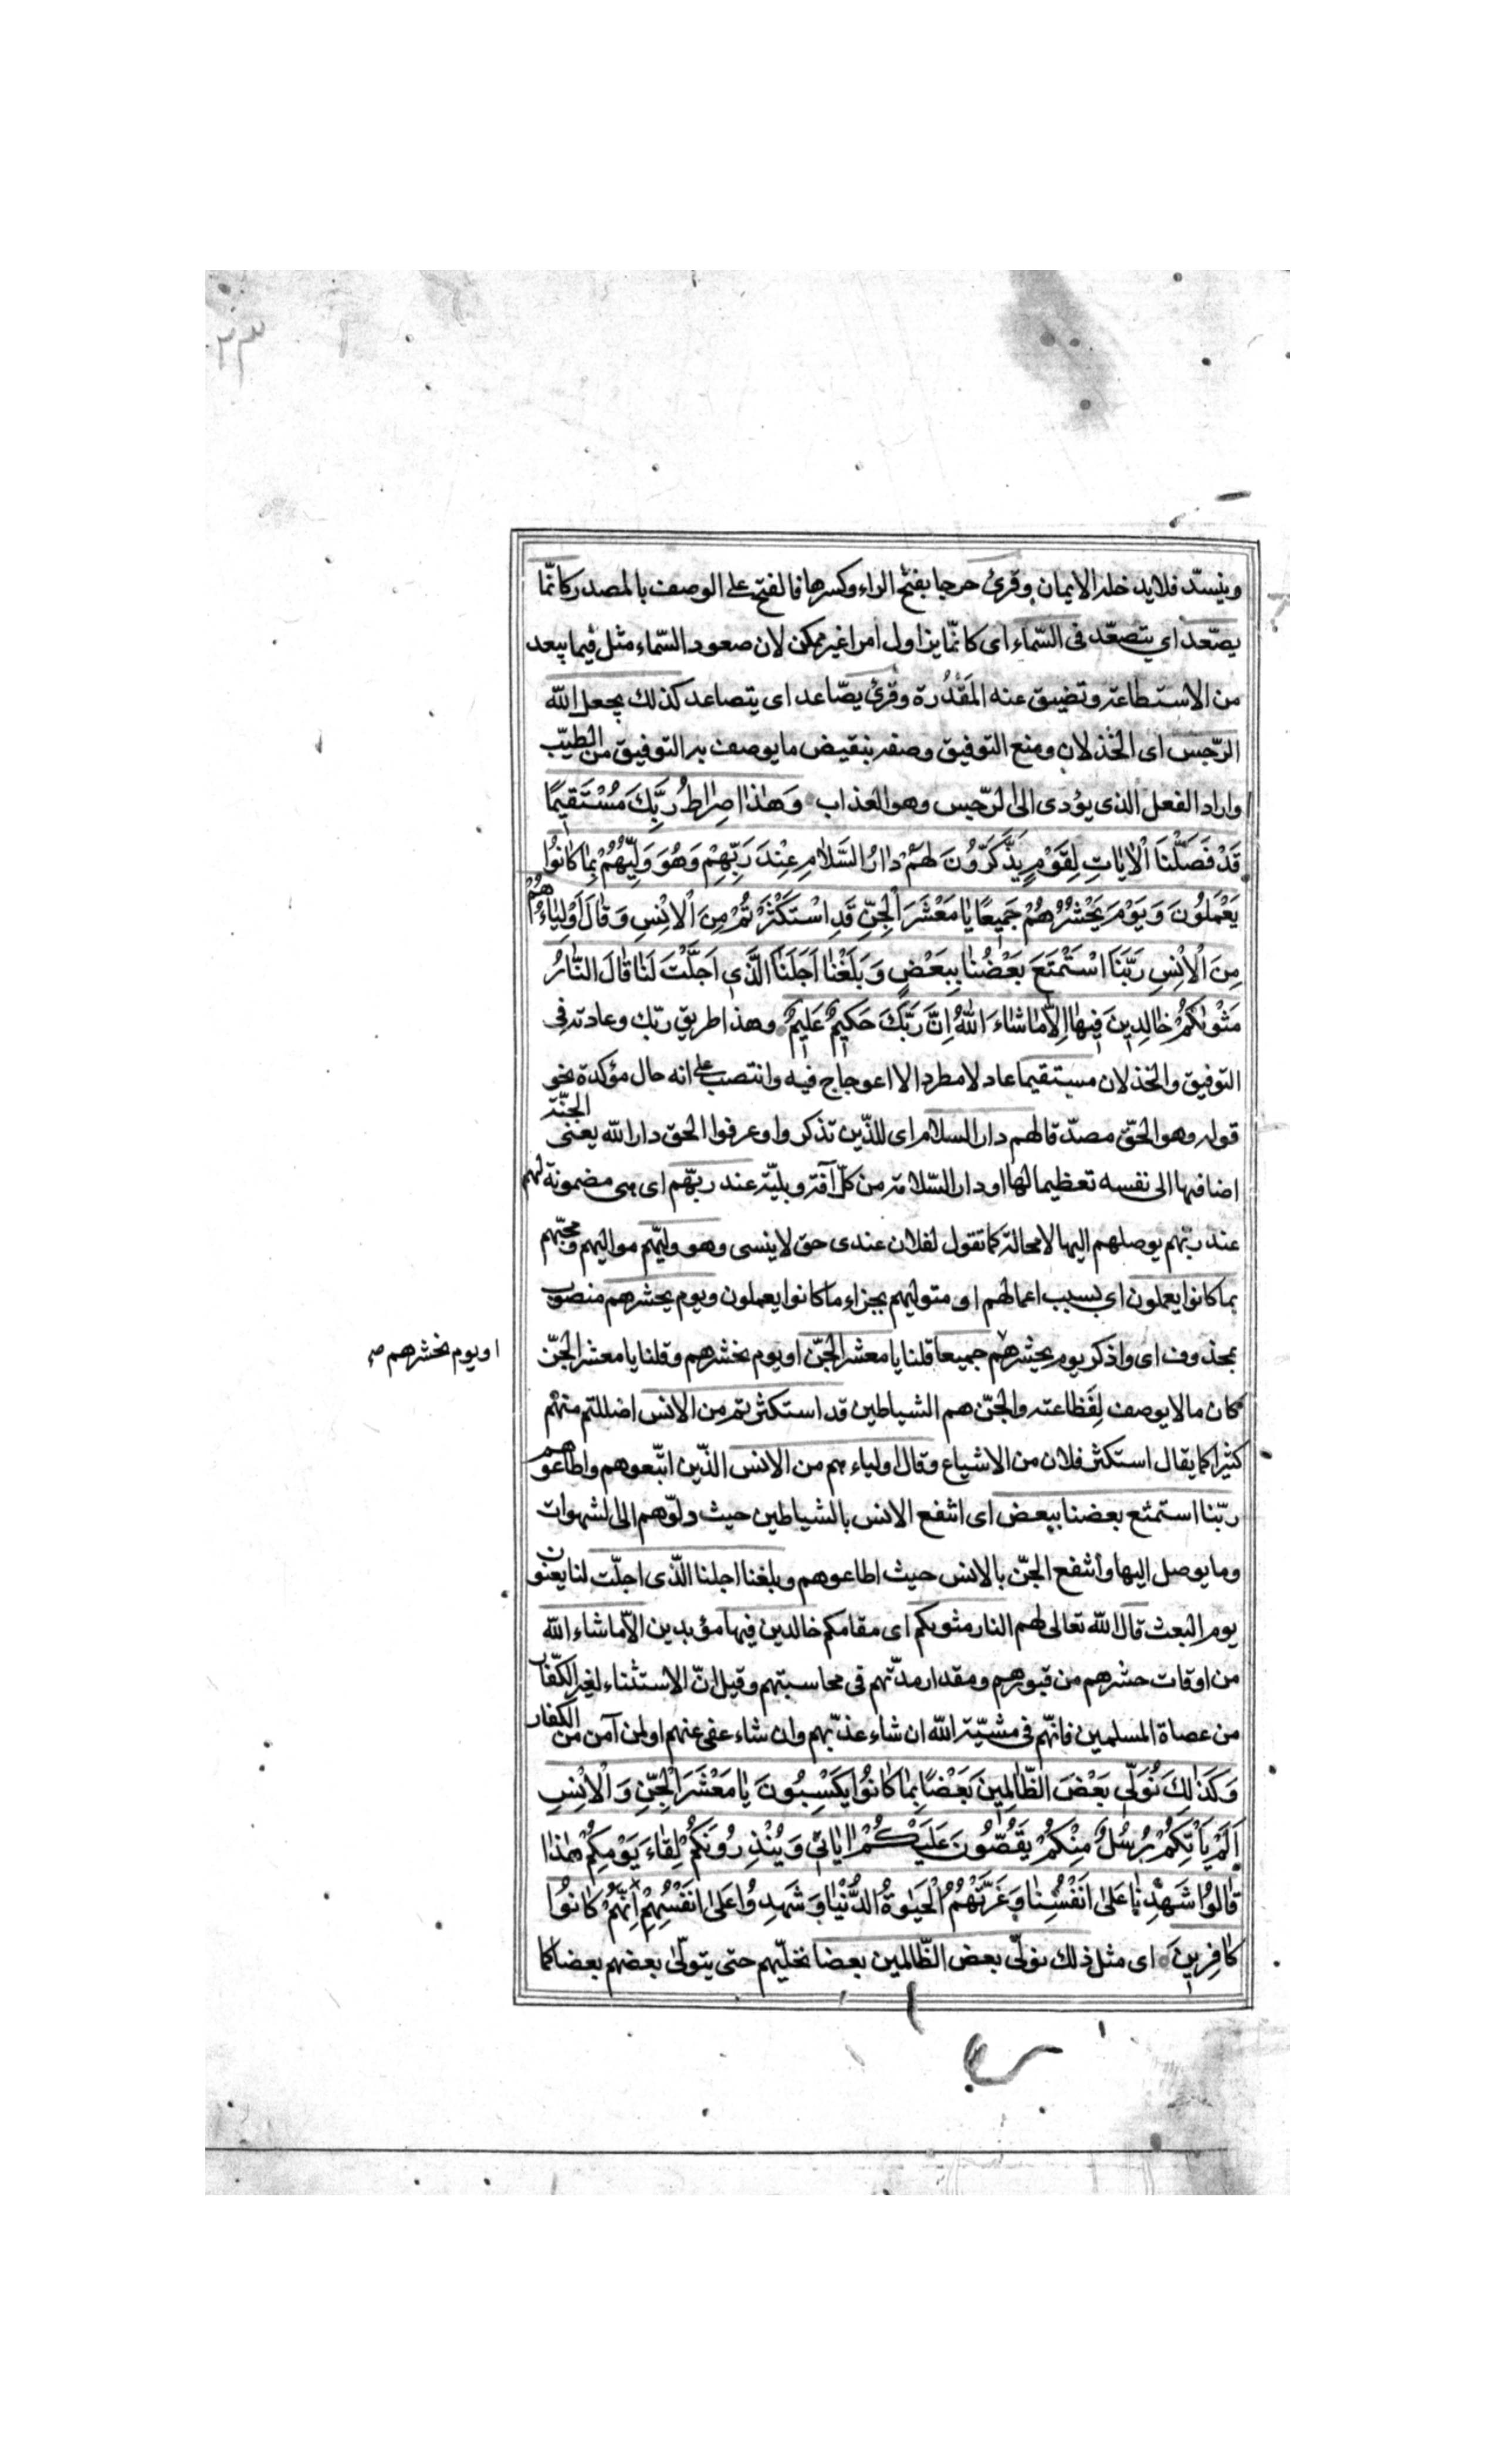 وينسدّ فلا يدخله الايمان وقرئ حرجا بفتح الراء وكسرها فالفتح على الوصف بالمصدر كانّما
يصّعد اى يتصعّد فى السّماء اى كانّما يزاول امرا غير ممكن لان صعود السّماء مثل فيما يبعد
من الاستطاعة وتضيق عنه المَقدُرة وقرئ يصّاعد اى يتصاعد كذلك يجعل الله
الرّجس اى الخذلان ومنع التوفيق وصفه بنقيض ما يوصف به التوفيق من الطيّب
واراد الفعل الذى يؤدى الى الرّجس وهو العذاب وَهٰذا صِراطُ رَبِّكَ مُسْتَقيمًا
قَدْ فَصَّلْنَا الْاٰياتِ لِقَوْمٍ يَذَّكَّرُونَ لَهُمْ دارُ السَّلامِ عِنْدَ رَبِّهِمْ وَهُوَ وَلِيُّهُمْ بِما كانُوا
يَعْمَلُونَ وَيَوْمَ يَحْشُرُهُمْ جَميعًا يا مَعْشَرَ الْجِنِّ قَدِ اسْتَكْثَرْتُمْ مِنَ الْاِنْسِ وَقالَ اَوْلِياءُهُمْ
مِنَ الْاِنْسِ رَبَّنَا اسْتَمْتَعَ بَعْضُنا بِبَعْضٍ وَبَلَغْنا اَجَلَنَا الَّذى اَجَلَّتَ لَنا قالَ النّارُ
مَثْوٰىكُمْ خالِدينَ فيها اِلّا ما شاءَ اللهُ اِنَّ رَبَّكَ حَكيمٌ عَليمٌ وهذا طريق ربّك وعادته فى
التوفيق والخذلان مستقيما عادلا مطردا لا اعوجاج فيه وانتصب على انه حال مؤكدة نحو
قوله وهو الحقّ مصدّقا لهم دار السلام اى للذّين تذكروا وعرفوا الحق دار الله يعنى الجنّة
اضافها الى نفسه تعظيما لها او دار السّلامة من كلّ آفة وبليّة عند ربّهم اى هى مضمونة لهم
عند ربّهم يوصلهم اليها لا محالة كما تقول لفلان عندى حق لا ينسى وهو وليّهم مواليهم ومحبّهم
بما كانوا يعملون اى بسبب اعمالهم او متوليهم بجزاء ما كانوا يعملون ويوم يحشرهم منصوب
بمحذوف اى واذكر يوم يحشرهم جميعا قلنا يا معشر الجنّ او يوم نحشرهم وقلنا يا معشر الجنّ
او يوم نحشرهم صح
كان ما لا يوصف لِفَظاعته والجنّ هم الشياطين قد استكثرتم من الانس اضللتم منهم
كثيرا كما يقال استكثر فلان من الاشياع وقال اولياءهم من الانس الذّين اتّبعوهم واطاعوهم
ربّنا استمتع بعضنا ببعض اى انتفع الانس بالشياطين حيث دلّوهم الى الشهوات
وما يوصل اليها وانتفع الجنّ بالانس حيث اطاعوهم وبلغنا اجلنا الّذى اجلّت لنا يعنون
يوم البعث قال الله تعالى لهم النار مثويكم اى مقامكم خالدين فيها مؤبدين الّا ما شاء الله
من اوقات حشرهم من قبورهم ومقدار مدّتهم فى محاسبتهم وقيل انّ الاستثناء لغير الكفّار
من عصاة المسلمين فانّهم فى مشيّة الله ان شاء عذّبهم وان شاء عفى عنهم او لمن آمن من الكفار
وَكَذٰلِكَ نُوَلّى بَعْضَ الظّالِمينَ بَعْضًا بِما كانُوا يَكْسِبُونَ يا مَعْشَرَ الْجِنِّ وَالْاِنْسِ
اَلَمْ يَأْتِكُمْ رُسُلٌ مِنْكُمْ يَقُصُّونَ عَلَيْكُمْ اٰياتى وَيُنْذِرُونَكُمْ لِقاءَ يَوْمِكُمْ هٰذا
قالُوا شَهِدْنا عَلىٰ اَنْفُسِنا وَغَرَّتْهُمُ الْحَيٰوةُ الدُّنْيا وَشَهِدُوا عَلىٰ اَنْفُسِهِمْ اَنَّهُمْ كانُوا
كافِرينَ اى مثل ذلك نولّى بعض الظّالمين بعضا نخلّيهم حتى يتولّى بعضهم بعضا كما